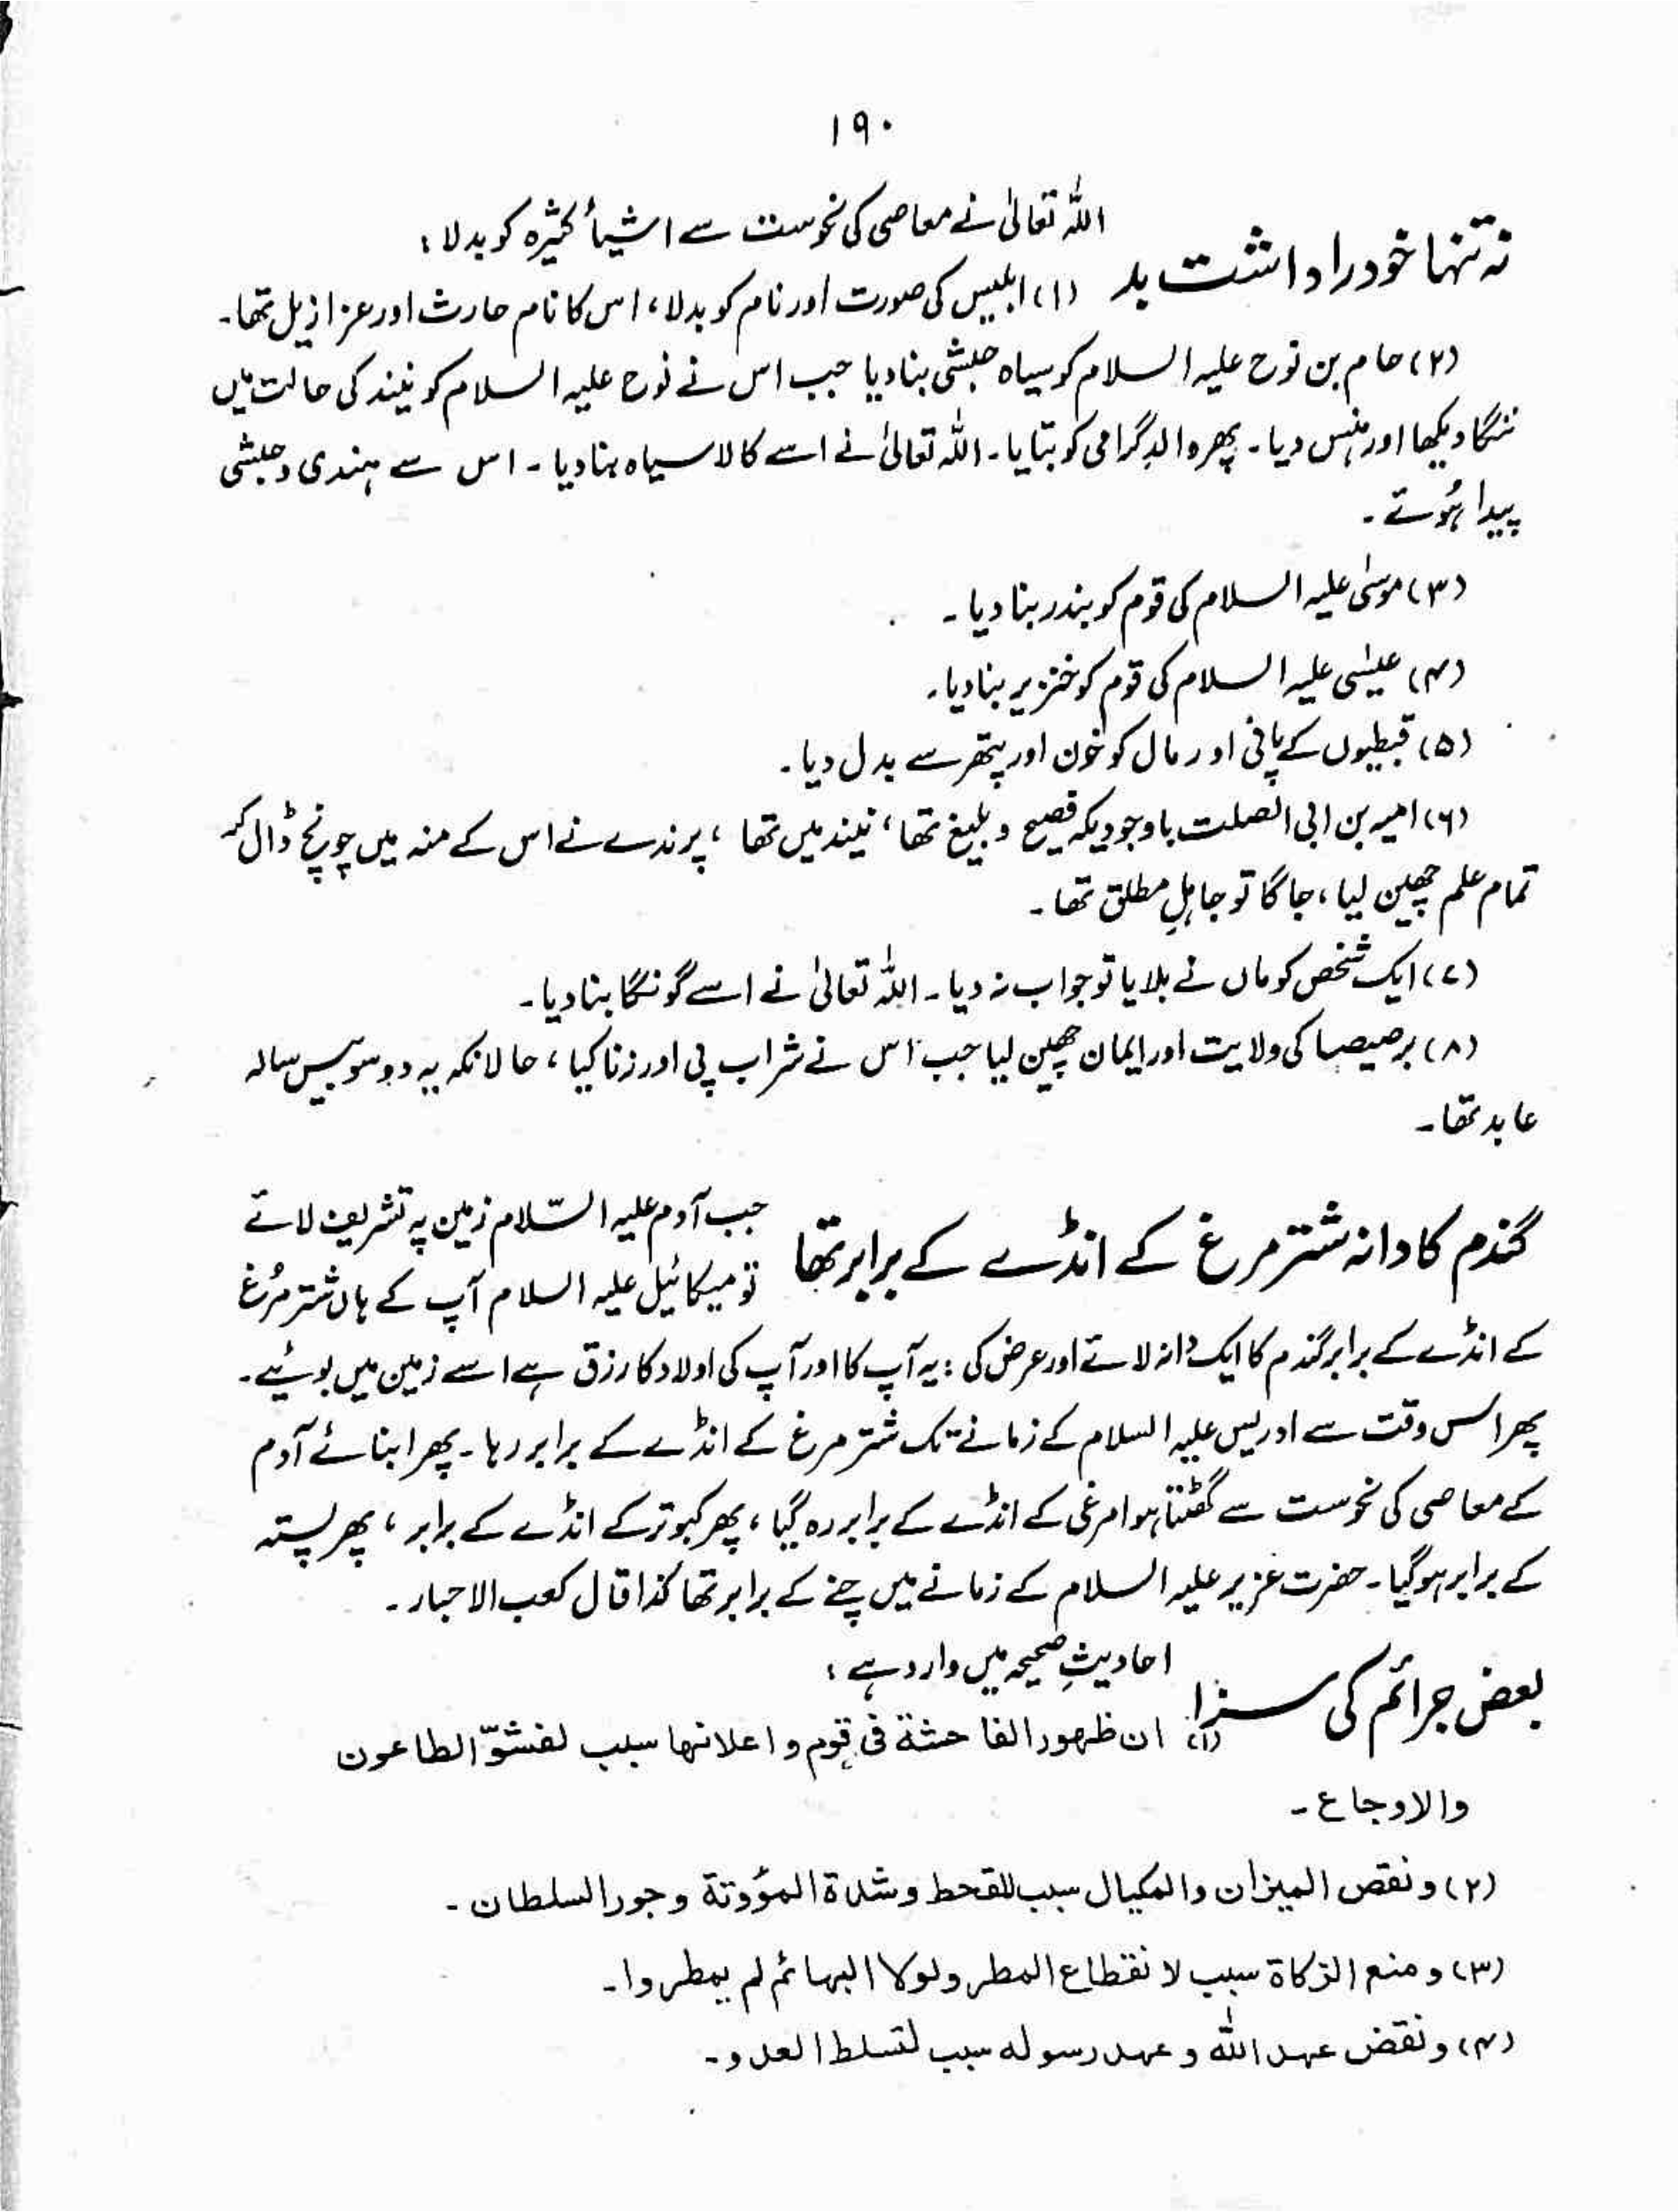 ۱۹۰
نہ تنہا خود را داشت بد
اللہ تعالیٰ نے معاصی کی نحوست سے اشیأ کثیرہ کو بدلا :
(۱) ابلیس کی صورت اور نام کو بدلا، اس کا نام حارث اور عزازیل تھا۔
(۲) حام بن نوح علیہ السلام کو سیاہ حبشی بنا دیا جب اس نے نوح علیہ السلام کو نیند کی حالت میں
ننگا دیکھا اور ہنس دیا۔ پھر والدِ گرامی کو بتایا۔ اللہ تعالیٰ نے اسے کالا سیاہ بنا دیا۔ اس سے ہندی و حبشی
پیدا ہُوئے۔
(۳) موسیٰ علیہ السلام کی قوم کو بندر بنا دیا۔
(۴) عیسٰی علیہ السلام کی قوم کو خنزیر بنا دیا۔
(۵) قبطیوں کے پانی اور مال کو خون اور پتھر سے بدل دیا۔
(۶) امیہ بن ابی الصلت باوجودیکہ فصیح و بلیغ تھا، نیند میں تھا، پرندے نے اس کے منہ میں چونچ ڈال کر
تمام علم چھین لیا، جاگا تو جاہلِ مطلق تھا۔
(۷) ایک شخص کو ماں نے بلایا تو جواب نہ دیا۔ اللہ تعالیٰ نے اسے گونگا بنا دیا۔
(۸) برصیصا کی ولایت اور ایمان چھین لیا جب اس نے شراب پی اور زنا کیا، حالانکہ یہ دو سو بیس سالہ
عابد تھا۔
گندم کا دانہ شتر مرغ کے انڈے کے برابر تھا
جب آدم علیہ السّلام زمین پہ تشریف لائے
تو میکائیل علیہ السلام آپ کے ہاں شتر مُرغ
کے انڈے کے برابر گندم کا ایک دانہ لائے اور عرض کی : یہ آپ کا اور آپ کی اولاد کا رزق ہے اسے زمین میں بوئیے۔
پھر اس وقت سے ادریس علیہ السلام کے زمانے تک شتر مرغ کے انڈے کے برابر رہا۔ پھر ابنائے آدم
کے معاصی کی نحوست سے گھٹتا ہوا مرغی کے انڈے کے برابر رہ گیا، پھر کبوتر کے انڈے کے برابر، پھر پستہ
کے برابر ہو گیا۔ حضرت عزیر علیہ السلام کے زمانے میں چنے کے برابر تھا کذا قال کعب الاحبار۔
بعض جرائم کی سزا
احادیثِ صحیحہ میں وارد ہے :
(۱) ان ظهور الفاحشة فی قوم و اعلانها سبب لفشوّ الطاعون
والاوجاع۔
(۲) و نقص المیزان والمکیال سبب للقحط و شدة المؤونة و جور السلطان۔
(۳) و منع الزکاة سبب لانقطاع المطر ولولا البهائم لم یمطروا۔
(۴) و نقض عهد اللہ و عهد رسوله سبب لتسلط العدو۔